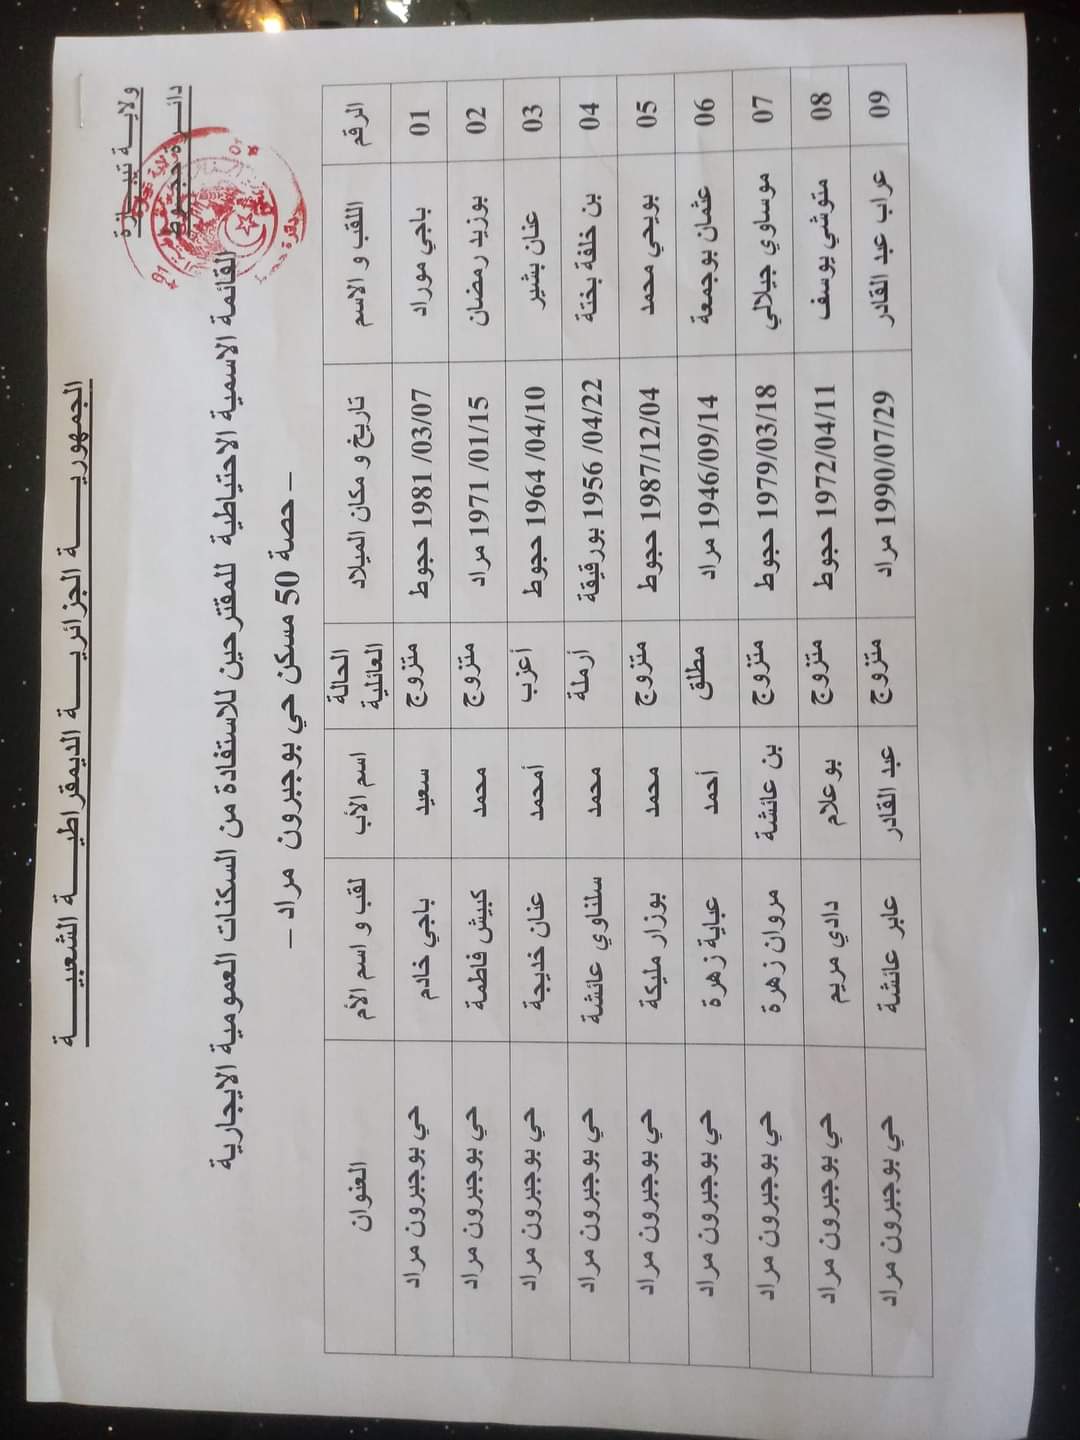 الجمهوريـــــة الجزائريـــــة الديمقراطيـــــة الشعبيـــــة
ولايـــة تيبـــازة
دائـــرة حجـــوط
القائمة الاسمية الاحتياطية للمقترحين للاستفادة من السكنات العمومية الايجارية
– حصة 50 مسكن حي بوجبرون مراد –
الرقم اللقب و الاسم تاريخ و مكان الميلاد الحالة العائلية اسم الأب لقب و اسم الأم العنوان
01 باجي موراد 1981 /03/07 حجوط متزوج سعيد باجي خادم حي بوجبرون مراد
02 بوزيد رمضان 1971 /01/15 مراد متزوج محمد كبيش فاطمة حي بوجبرون مراد
03 عنان بشير 1964 /04/10 حجوط أعزب أمحمد عنان خديجة حي بوجبرون مراد
04 بن خلفة بختة 1956 /04/22 بورقيقة أرملة محمد سلناوي عائشة حي بوجبرون مراد
05 بويحي محمد 1987/12/04 حجوط متزوج محمد بوزار مليكة حي بوجبرون مراد
06 عثمان بوجمعة 1946/09/14 مراد مطلق أحمد عباية زهرة حي بوجبرون مراد
07 موساوي جيلالي 1979/03/18 حجوط متزوج بن عائشة مروان زهرة حي بوجبرون مراد
08 متوشي يوسف 1972/04/11 حجوط متزوج بوعلام دادي مريم حي بوجبرون مراد
09 عراب عبد القادر 1990/07/29 مراد متزوج عبد القادر عابر عائشة حي بوجبرون مراد